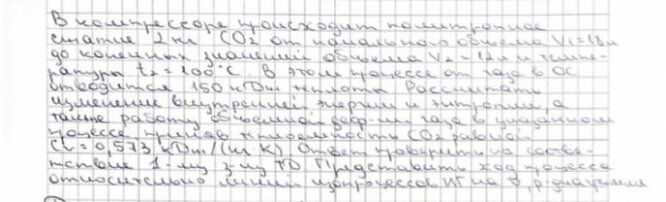 В компрессоре происходит политропное
сжатие 2 кг CO2 от начального объема V1=18л
до конечных значений объема V2 = 12л и темпе-
ратуры t2 = 100°C. В этом процессе от газа в ОС
отводится 150 кДж теплоты. Рассчитать
изменение внутренней энергии и энтропии, а
также работу объемной деф-ии газа в указанном
процессе, приняв теплоемкость CO2 равной
Cv = 0,573 кДж/(кг К). Ответ проверить на соотве-
тствие 1-му з-ну ТД. Представить ход процесса
относительно линий изопроцессов ИГ на v, p диаграмме